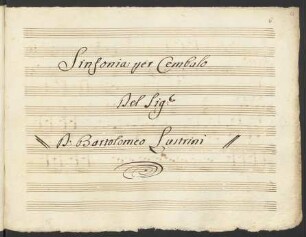 Sinfonia per Cembalo
Del Sig.e
D. Bartolomeo Lustrini